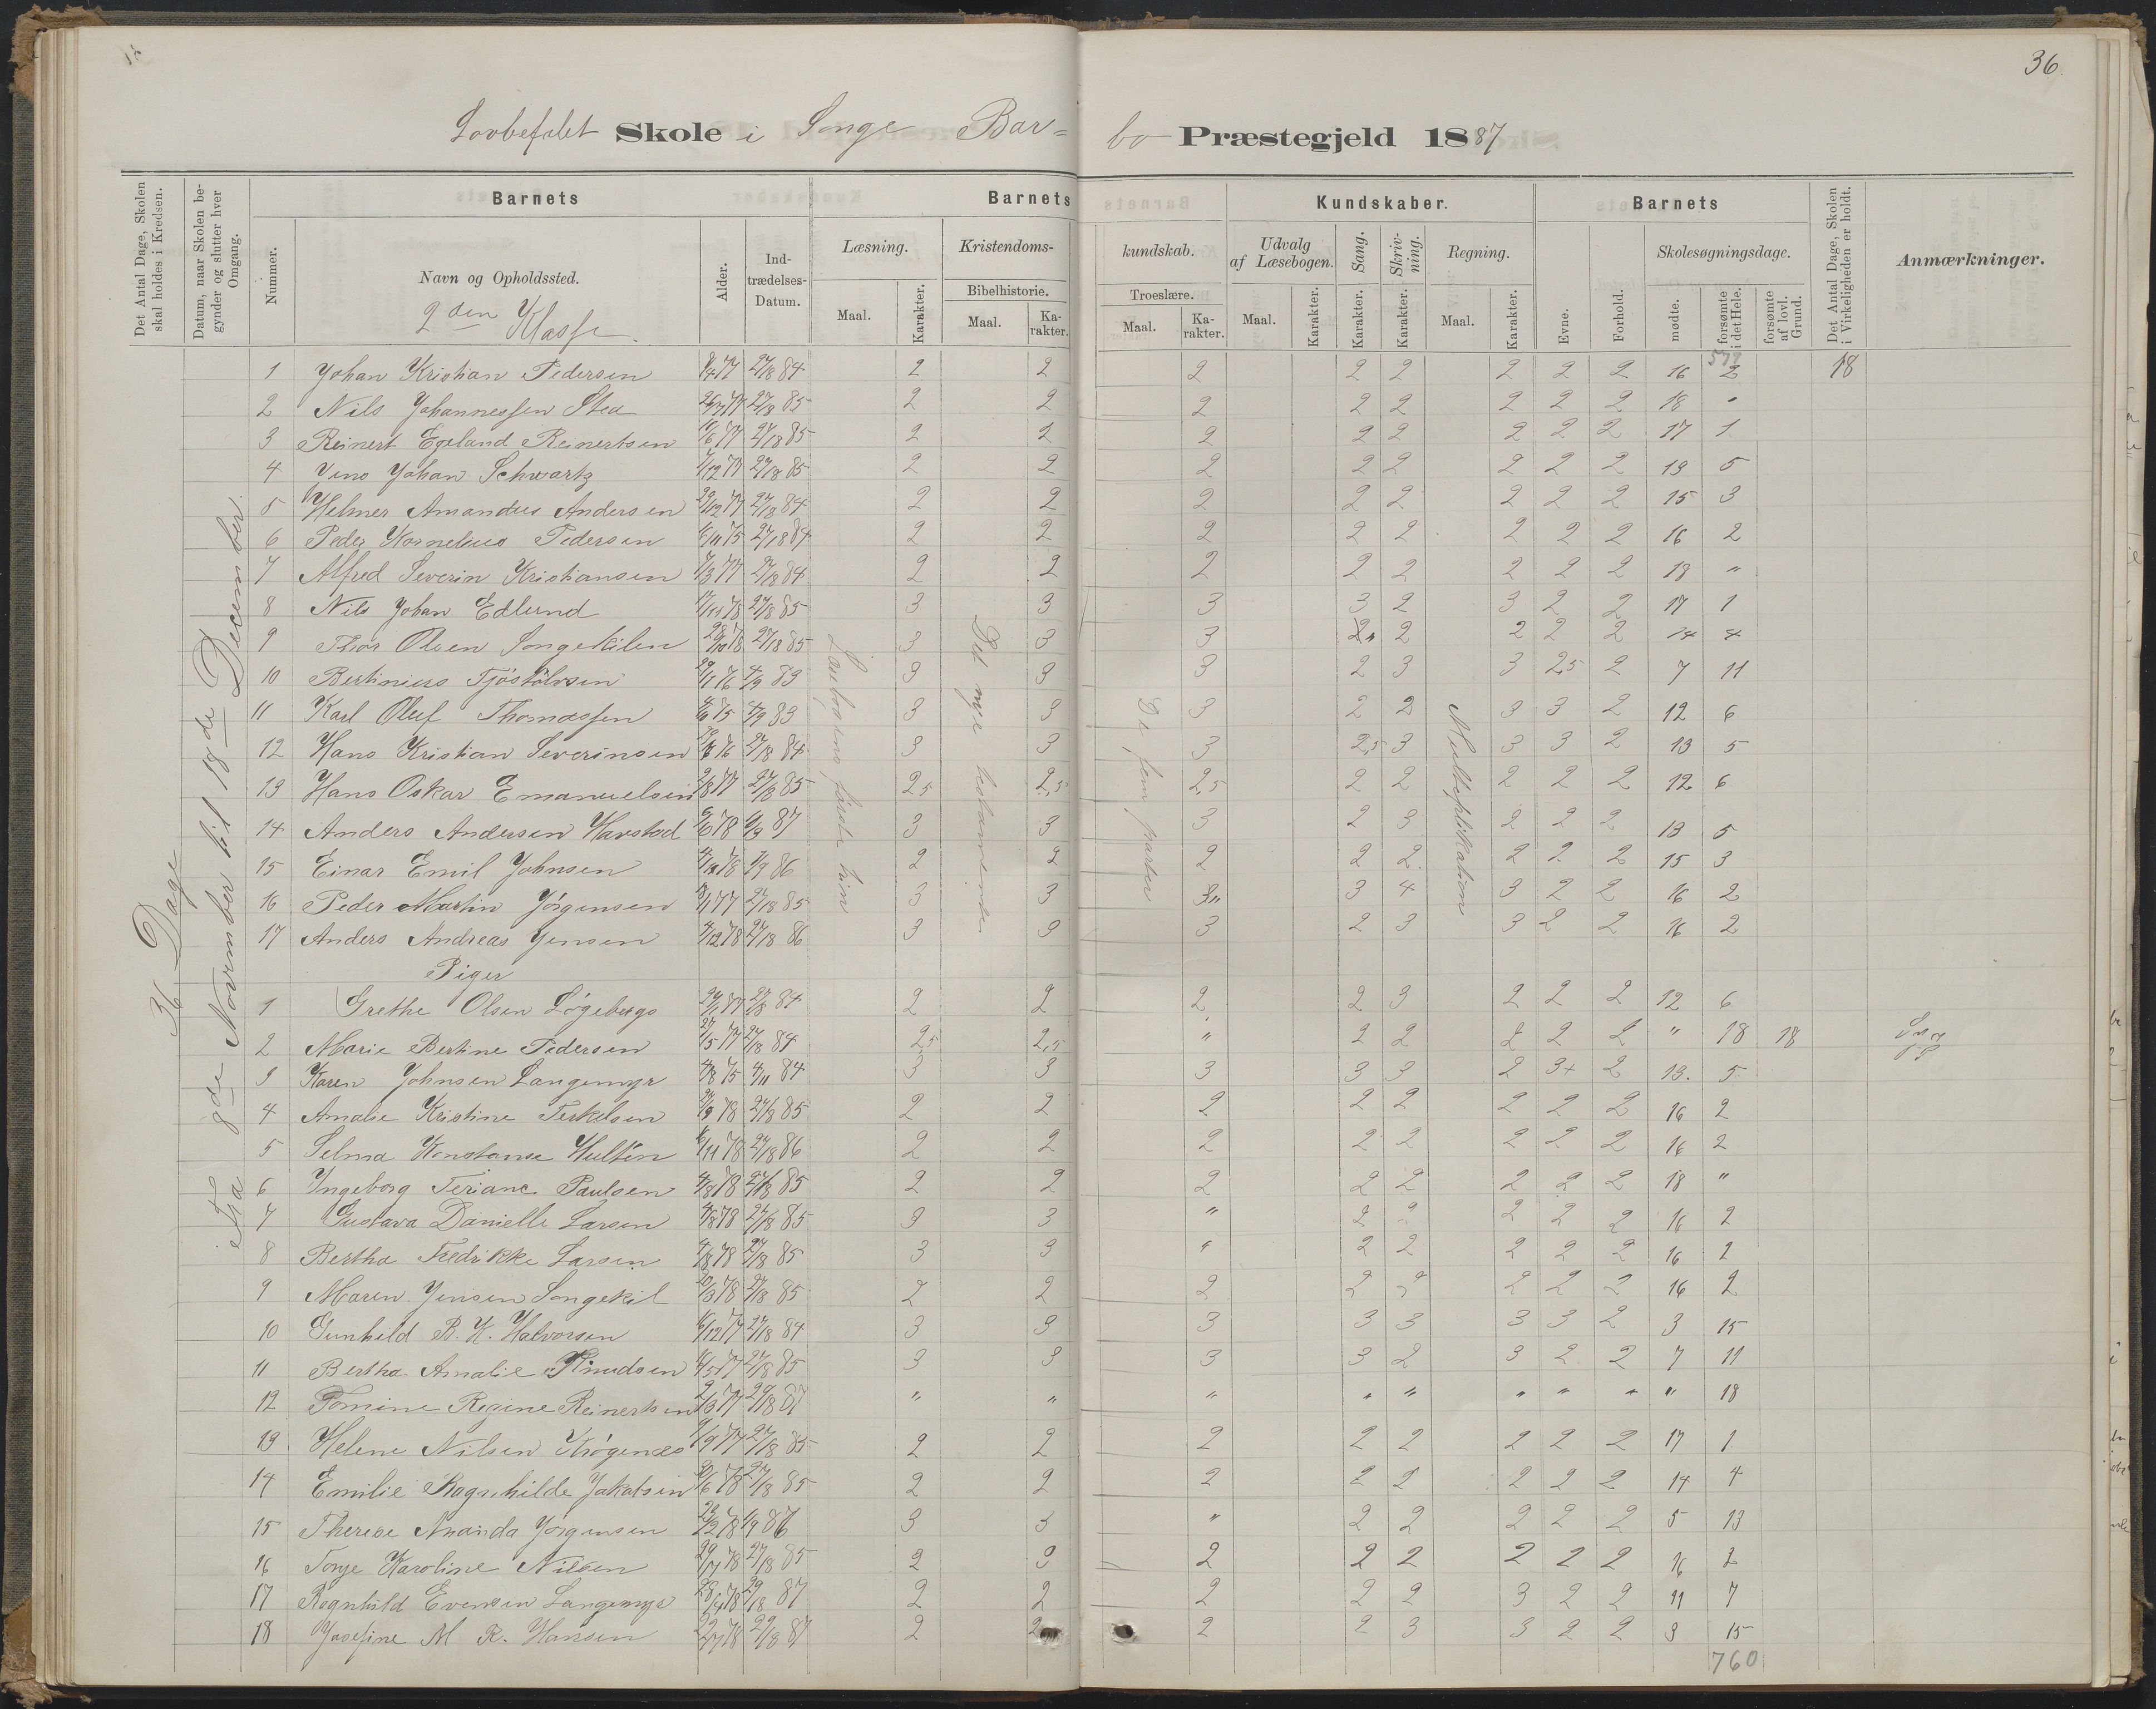 36
Lovbefalet Skole i Songe Bar=
bo Præstegjeld 1887
Det Antal Dage, Skolen skal holdes i Kredsen.
Datum, naar Skolen begynder og slutter hver Omgang.
Nummer.
Barnets
Navn og Opholdssted.
2den Klasse.
Alder.
Indtrædelses-Datum.
Barnets
Læsning.
Maal.
Karakter.
Kristendoms-
Bibelhistorie.
Maal.
Karakter.
kundskab.
Troeslære.
Maal.
Karakter.
Kundskaber.
Udvalg af Læsebogen.
Maal.
Karakter.
Sang.
Karakter.
Skrivning.
Karakter.
Regning.
Maal.
Karakter.
Barnets
Evne.
Forhold.
Skolesøgningsdage.
mødte.
forsømte i det Hele.
forsømte af lovl. Grund.
Det Antal Dage, Skolen i Virkeligheden er holdt.
Anmærkninger.
36 Dage
Fra 8de November til 18de December.
Læsebogens første trin
Det nye testamente
De fem parter
Multiplikation
572
1 Johan Kristian Pedersen 77 27/8 84 2 2 2 2 2 2 2 2 16 2 18
2 Nils Johannessen Stea 77 27/8 85 2 2 2 2 2 2 2 2 18 "
3 Reinert Egeland Reinertsen 77 27/8 85 2 2 2 2 2 2 2 2 17 1
4 Jens Johan Schwartz 7/12 77 27/8 85 2 2 2 2 2 2 2 2 13 5
5 Helmer Amandus Andersen 77 27/8 84 2 2 2 2 2 2 2 2 15 3
6 Peder Kornelius Pedersen 75 27/8 84 2 2 2 2 2 2 2 2 16 2
7 Alfred Severin Kristiansen 77 27/8 84 2 2 2 2 2 2 2 2 18 "
8 Nils Johan Edlund 78 27/8 85 3 3 3 3 2 3 2 2 17 1
9 Thor Olsen Songekilen 28/10 78 27/8 85 3 3 3 2 2 2 2 2 14 4
10 Bertinius Tjöstölvsen 76 4/9 83 3 3 3 2 3 3 2,5 2 7 11
11 Karl Oluf Thomassen 75 4/9 83 3 3 3 2 2 3 3 2 12 6
12 Hans Kristian Severinsen 76 27/8 84 3 3 3 2,5 3 3 3 2 13 5
13 Hans Oskar Emanuelsen 77 27/8 85 2,5 2,5 2,5 2 2 2 2 2 12 6
14 Anders Andersen Havstad 78 6/9 87 3 3 3 2 3 2 2 2 13 5
15 Einar Emil Johnsen 78 1/9 86 2 2 2 2 2 2 2 2 15 3
16 Peder Martin Jörgensen 77 27/8 85 3 3 3 3 4 3 2 2 16 2
17 Anders Andreas Jensen 78 27/8 86 3 3 3 2 3 3 2 2 16 2
Piger
1 Grethe Olsen Lögebergs 77 27/8 84 2 2 2 2 3 2 2 2 12 6
2 Marie Bertine Pedersen 27/5 77 27/8 84 2,5 2,5 " 2 2 2 2 2 " 18 18
3 Karen Johnsen Langemyr 75 4/11 84 3 3 3 3 3 2 3+ 2 13. 5
4 Amalie Kristine Terkelsen 78 27/8 85 2 2 2 2 2 2 2 2 16 2
5 Selma Konstanse Hultén 78 27/8 86 2 2 2 2 2 2 2 2 16 2
6 Ingeborg Teriane Paulsen 78 27/8 85 2 2 2 2 2 2 2 2 18 "
7 Gustava Danielle Larsen 78 27/8 85 3 3 " 2 2 2 2 2 16 2
8 Bertha Fredrikke Larsen 78 27/8 85 3 3 " 2 2 2 2 2 16 2
9 Maren Jensen Songekil 78 27/8 85 2 2 2 2 2 2 2 2 16 2
10 Gunhild B. K. Halvorsen 77 27/8 84 3 3 3 3 3 3 3 2 3 15
11 Bertha Amalie Knudsen 77 27/8 85 3 3 3 3 2 3 2 2 7 11
12 Tomine Regine Reinertsen 77 29/8 87 " " " " " " " " " 18
13 Helene Nilsen Krøgenæs 77 27/8 85 2 2 2 2 2 2 2 2 17 1
14 Emilie Ragnhilde Jakobsen 78 27/8 85 2 2 2 2 2 2 2 2 14 4
15 Therese Ananda Jörgensen 78 1/9 86 3 3 " 2 2 2 2 2 5 13
16 Tonje Karoline Nilsen 78 27/8 85 2 3 2 2 2 2 2 2 16 2
17 Ragnhild Evensen Langemyr 78 29/8 87 2 2 2 2 2 3 2 2 11 7
18 Josefine M R. Hansen 78 29/8 87 2 2 2 2 3 3 2 2 3 15
760